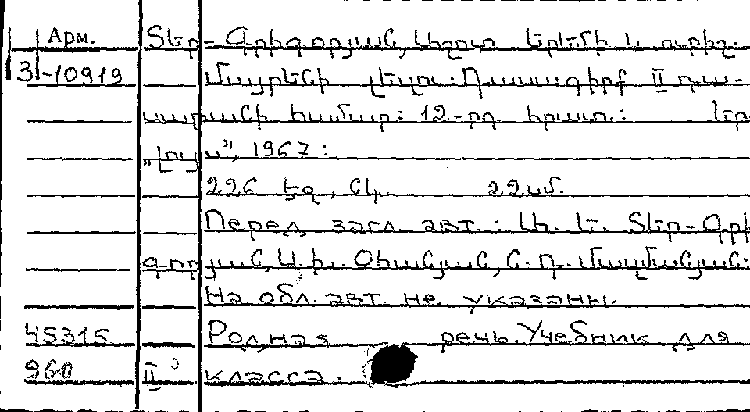 Арм. Տեր-Գրիգորյան, Աշոտ Երեմի և ուրիշ.
3-10919 Մայրենի լեզու: Դասագիրք II դա-
սարանի համար: 12-րդ հրատ.: Եր
„Լույս”, 1967:
226 էջ, նկ. 22սմ.
Перед загл. авт.: Ա. Ե. Տեր-Գրի
գորյան, Ս. Օհանյան, Մայմանյան:
На обл. авт. не указаны.
45315 Родная речь. Учебник для
960 II класса.